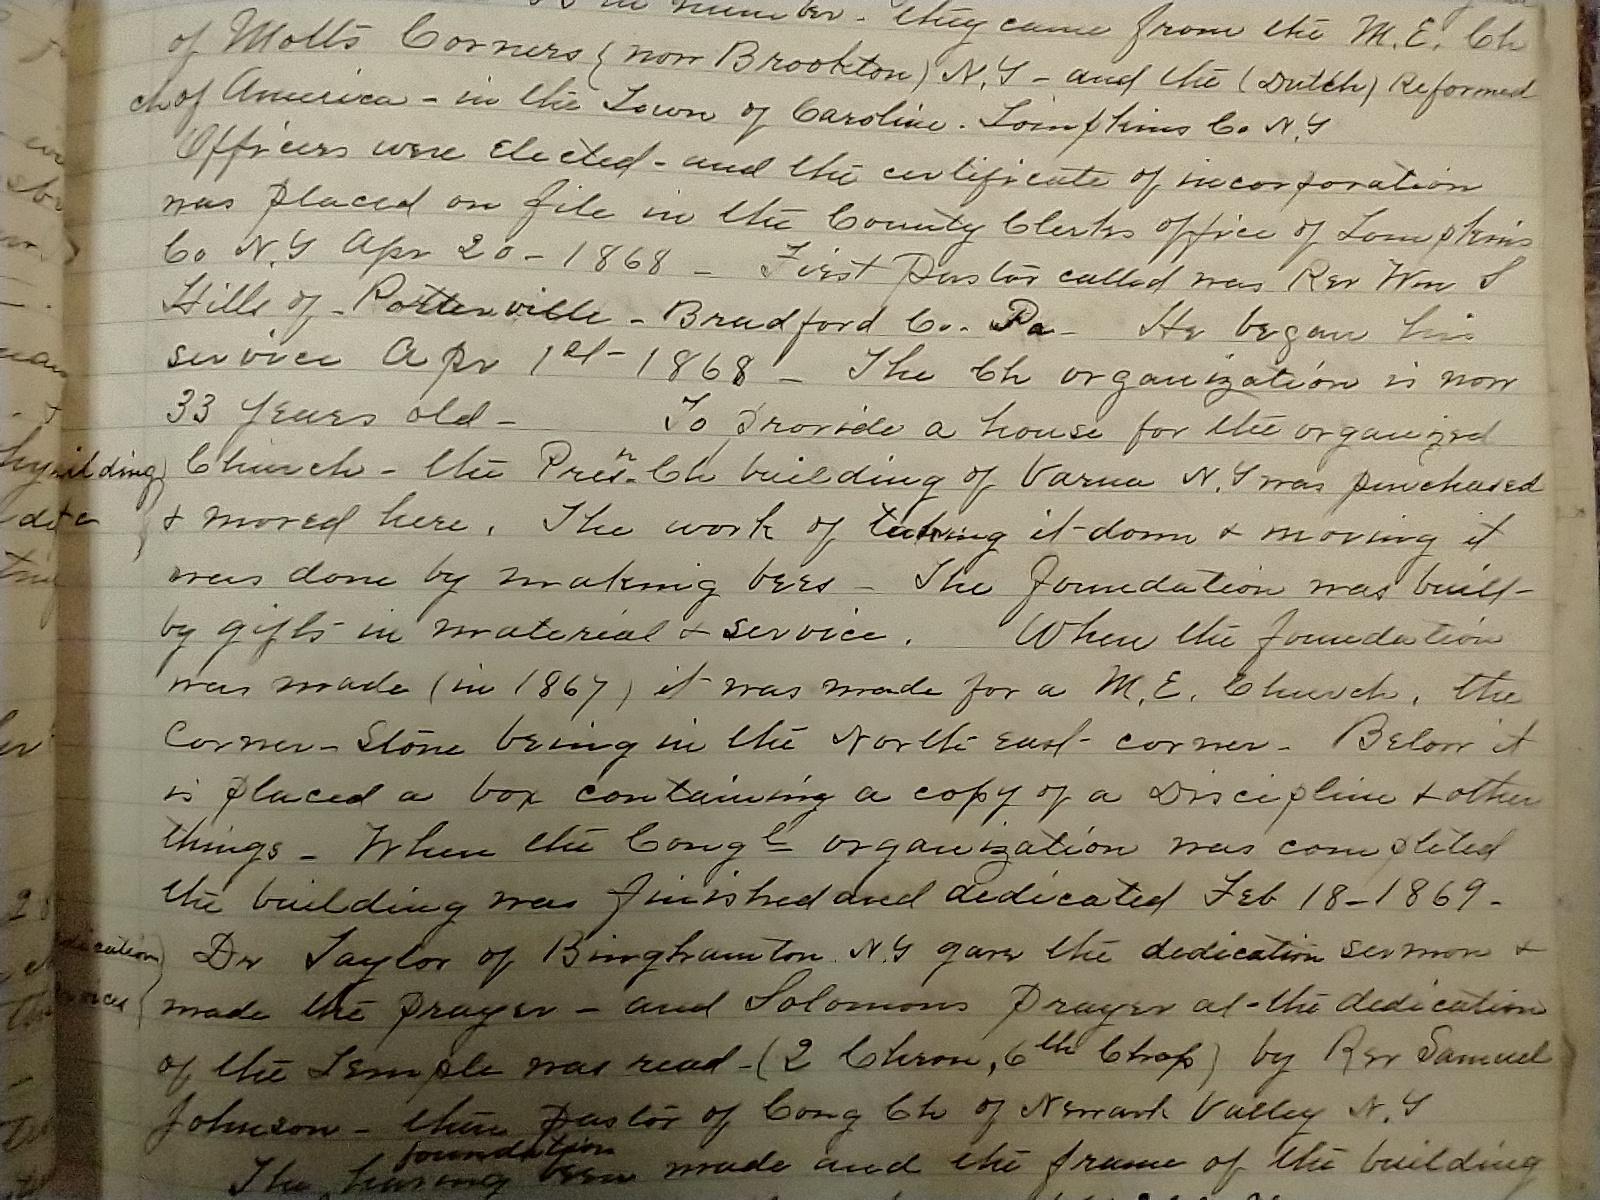 in number - they came from the M.E. Ch
of Motts Corners (now Brookton) N.Y - and the (Dutch) Reformed
ch of America - in the Town of Caroline. Tompkins Co N.Y
Officers were elected - and the certificate of incorporation
was placed on file in the County Clerks office of Tompkins
Co N.Y Apr 20 - 1868 - First pastor called was Rev Wm S
Hills of - Potterville - Bradford Co. Pa - He began his
service Apr 1st - 1868 - The Ch organization is now
33 years old - To provide a house for the organized
Church - the Presn. Ch building of Varna N.Y was purchased
& moved here. The work of taking it down & moving it
was done by making bees - The foundation was built
by gifts in material & service. When the foundation
was made (in 1867) it was made for a M.E. Church, the
Corner-Stone being in the North east corner - Below it
is placed a box containing a copy of a Discipline & other
things - When the Congl organization was completed
the building was finished and dedicated Feb 18 - 1869 -
Dr Taylor of Binghamton N.Y gave the dedication sermon &
made the prayer - and Solomons prayer at the dedication
of the Temple was read - (2 Chron, 6th Chap) by Rev Samuel
Johnson - then pastor of Cong Ch of Newark Valley N.Y
foundation
The having been made and the frame of the building